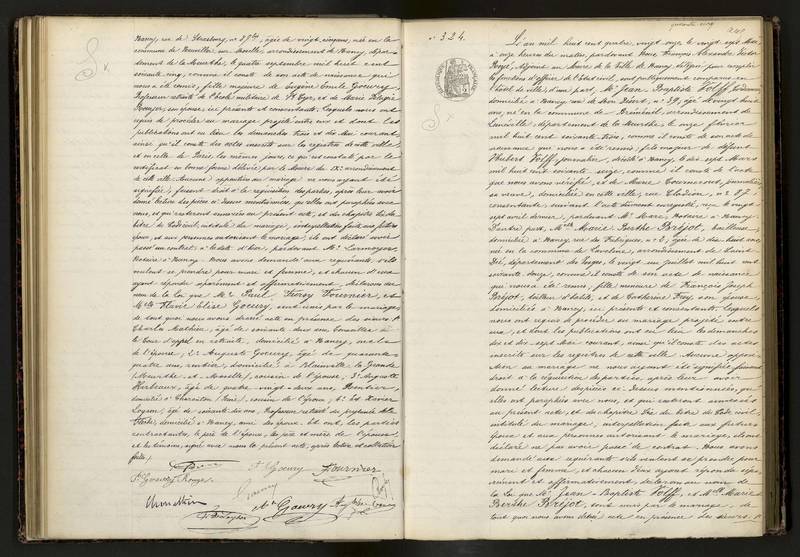 Nancy, rue de Strasbourg, n° 59 bis, âgée de vingt cinq ans, née en la
commune de Neuviller sur Moselle, arrondissement de Nancy, dépar-
tement de la Meurthe, le quatre septembre mil huit cent
soixante cinq, comme il conste de son acte de naissance qui
nous a été remis, fille majeure de Eugène Emile Goeury,
épouse, ici présents et consentants. Lesquels nous ont
requis de procéder au mariage projeté entre eux et dont les
publications ont eu lieu les dimanches trois et dix Mai courant,
ainsi qu'il conste des actes inscrits sur les registres de cette ville
et en celle de Paris les mêmes jours, ce qui est constaté par le
certificat en bonne forme délivré par le Maire du IXe arrondissement
de cette ville. Aucune opposition au mariage ne nous ayant été
signifiée, faisant droit à la réquisition des parties, après leur avoir
donné lecture des pièces ci-dessus mentionnées, qu'elles ont paraphées avec
nous, et qui resteront annexées au présent acte, et du chapitre VI du
titre du Code civil, intitulé du mariage, interpellation faite aux futurs
époux, et aux personnes autorisant le mariage, ils ont déclaré avoir
passé un contrat à la date d'hier, pardevant Me Larmoyer
Notaire à Nancy. Nous avons demandé aux requérants s'ils
veulent se prendre pour mari et femme, et chacun d'eux
ayant répondu séparément et affirmativement, déclarons au
nom de la loi que Mr Paul Fournier, et
Mlle Marie Elise Goeury, sont unis par le mariage,
de tout quoi nous avons dressé acte en présence des sieurs 1°
Charles Mathieu, âgé de soixante deux ans, Conseiller à
la Cour d'appel en retraite, domicilié à Nancy, oncle
de l'épouse, 2° Auguste Goeury, âgé de quarante-
quatre ans, rentier, domicilié à Blainville la Grande
(Meurthe et Moselle), cousin de l'épouse; 3° Auguste
âgé de quatre vingt-deux ans, Rentier,
domicilié à Charenton (Seine), cousin de l'époux; 4° et Xavier
âgé de soixante dix ans, Professeur retraité
domicilié à Nancy, ami des époux. Et ont, les parties
contractantes, le père de l'époux, les père et mère de l'épouse
et les témoins, signé avec nous le présent acte, après lecture et collation
faites.
Goeury
Fournier
Goeury
Goeury
n° 324.
L'an mil huit cent quatre vingt onze le vingt sept Mai,
à onze heures du matin, pardevant Nous François Alexandre Victor
Adjoint au Maire de la Ville de Nancy, délégué pour remplir
les fonctions d'officier de l'état civil, sont publiquement comparus en
l'hôtel de ville: d'une part, Mr Jean Baptiste Volff,
domicilié à Nancy rue du Bon Pasteur, n° 39, âgé de vingt huit
ans, né en la commune de arrondissement de
Lunéville, département de la Meurthe le onze février
mil huit cent soixante trois, comme il conste de son acte de
naissance qui nous a été remis, fils majeur de défunt
Hubert Volff, journalier, décédé à Nancy, le dix sept Mars
mil huit cent soixante seize, comme il conste de l'acte
que nous avons vérifié, et de Marie journalière,
sa veuve, domiciliée en cette ville, rue Clodion, n° 27,
consentante suivant l'acte dûment enregistré, reçu le vingt
sept avril dernier, pardevant Me Marc, Notaire à Nancy.
D'autre part, Mlle Marie Berthe Bréjot, tailleuse
domiciliée à Nancy, rue des Fabriques, n° 2, âgée de dix-huit ans,
née en la commune de arrondissement de Saint
Dié, département des Vosges, le vingt un juillet mil huit cent
soixante douze, comme il conste de son acte de naissance
qui nous a été remis, fille mineure de François Joseph
Bréjot, tailleur d'habits, et de Catherine Frey, son épouse,
domiciliés à Nancy, ici présents et consentants. Lesquels
nous ont requis de procéder au mariage projeté entre
eux, et dont les publications ont eu lieu les dimanches
dix et dix sept Mai courant, ainsi qu'il conste des actes
inscrits sur les registres de cette ville. Aucune opposi-
tion au mariage ne nous ayant été signifiée, faisant
droit à la réquisition des parties, après leur avoir
donné lecture des pièces ci-dessus mentionnées, qu'
elles ont paraphées avec nous, et qui resteront annexées
au présent acte, et du chapitre VI du titre du Code civil,
intitulé du mariage, interpellation faite aux futurs
époux et aux personnes autorisant le mariage, ils ont
déclaré ne pas avoir passé de contrat. Nous avons
demandé aux requérants s'ils veulent se prendre pour
mari et femme, et chacun d'eux ayant répondu sépa-
rément et affirmativement, déclarons au nom de
la loi que Mr Jean-Baptiste Volff, et Mlle Marie
Berthe Bréjot, sont unis par le mariage, de
tout quoi nous avons dressé acte en présence des sieurs 1°